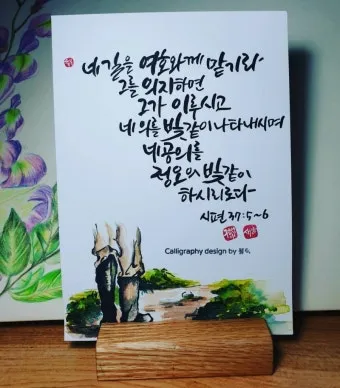 네 길을 여호와께 맡기라
그를 의지하면
그가 이루시고
네 의를 빛같이 나타내시며
네 공의를
정오의 빛같이
하시리로다
시편 37:5~6
Calligraphy design by